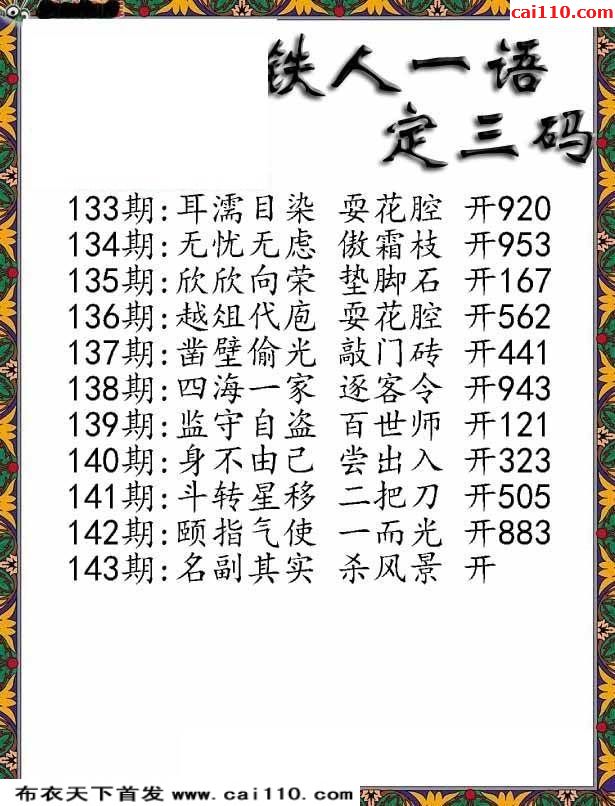 cai110.com
铁人一语
定三码
133期:耳濡目染 耍花腔 开920
134期:无忧无虑 傲霜枝 开953
135期:欣欣向荣 垫脚石 开167
136期:越俎代庖 耍花腔 开562
137期:凿壁偷光 敲门砖 开441
138期:四海一家 逐客令 开943
139期:监守自盗 百世师 开121
140期:身不由己 尝出入 开323
141期:斗转星移 二把刀 开505
142期:颐指气使 一而光 开883
143期:名副其实 杀风景 开
布衣天下首发 www.cai110.com